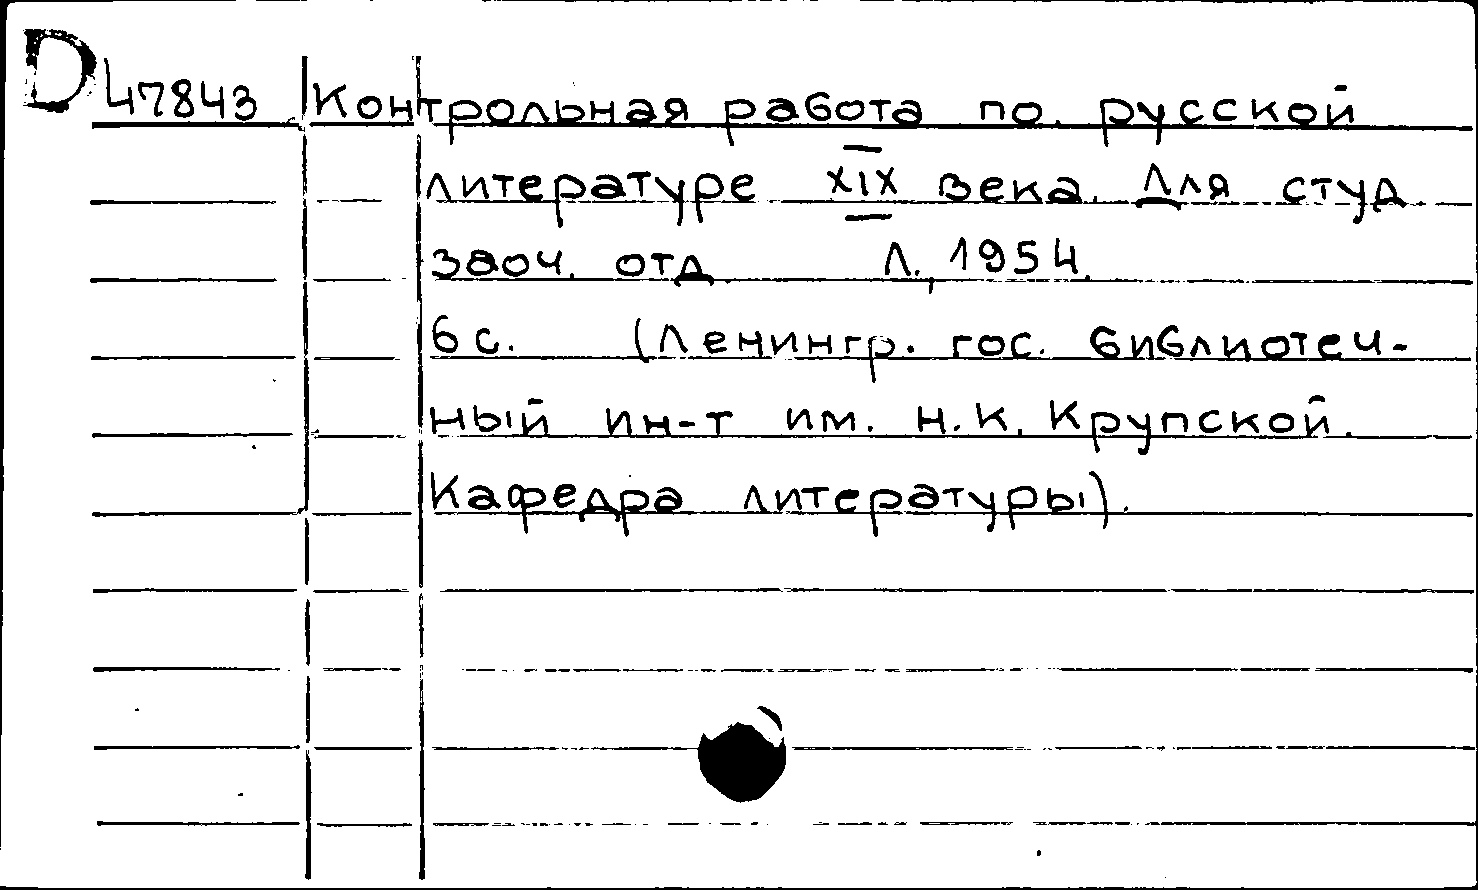 D 47843 Контрольная работа по русской
литературе XIX века. Для студ.
заоч. отд. Л., 1954.
6 с. (Ленингр. гос. библиотеч-
ный ин-т им. Н.К. Крупской.
Кафедра литературы).